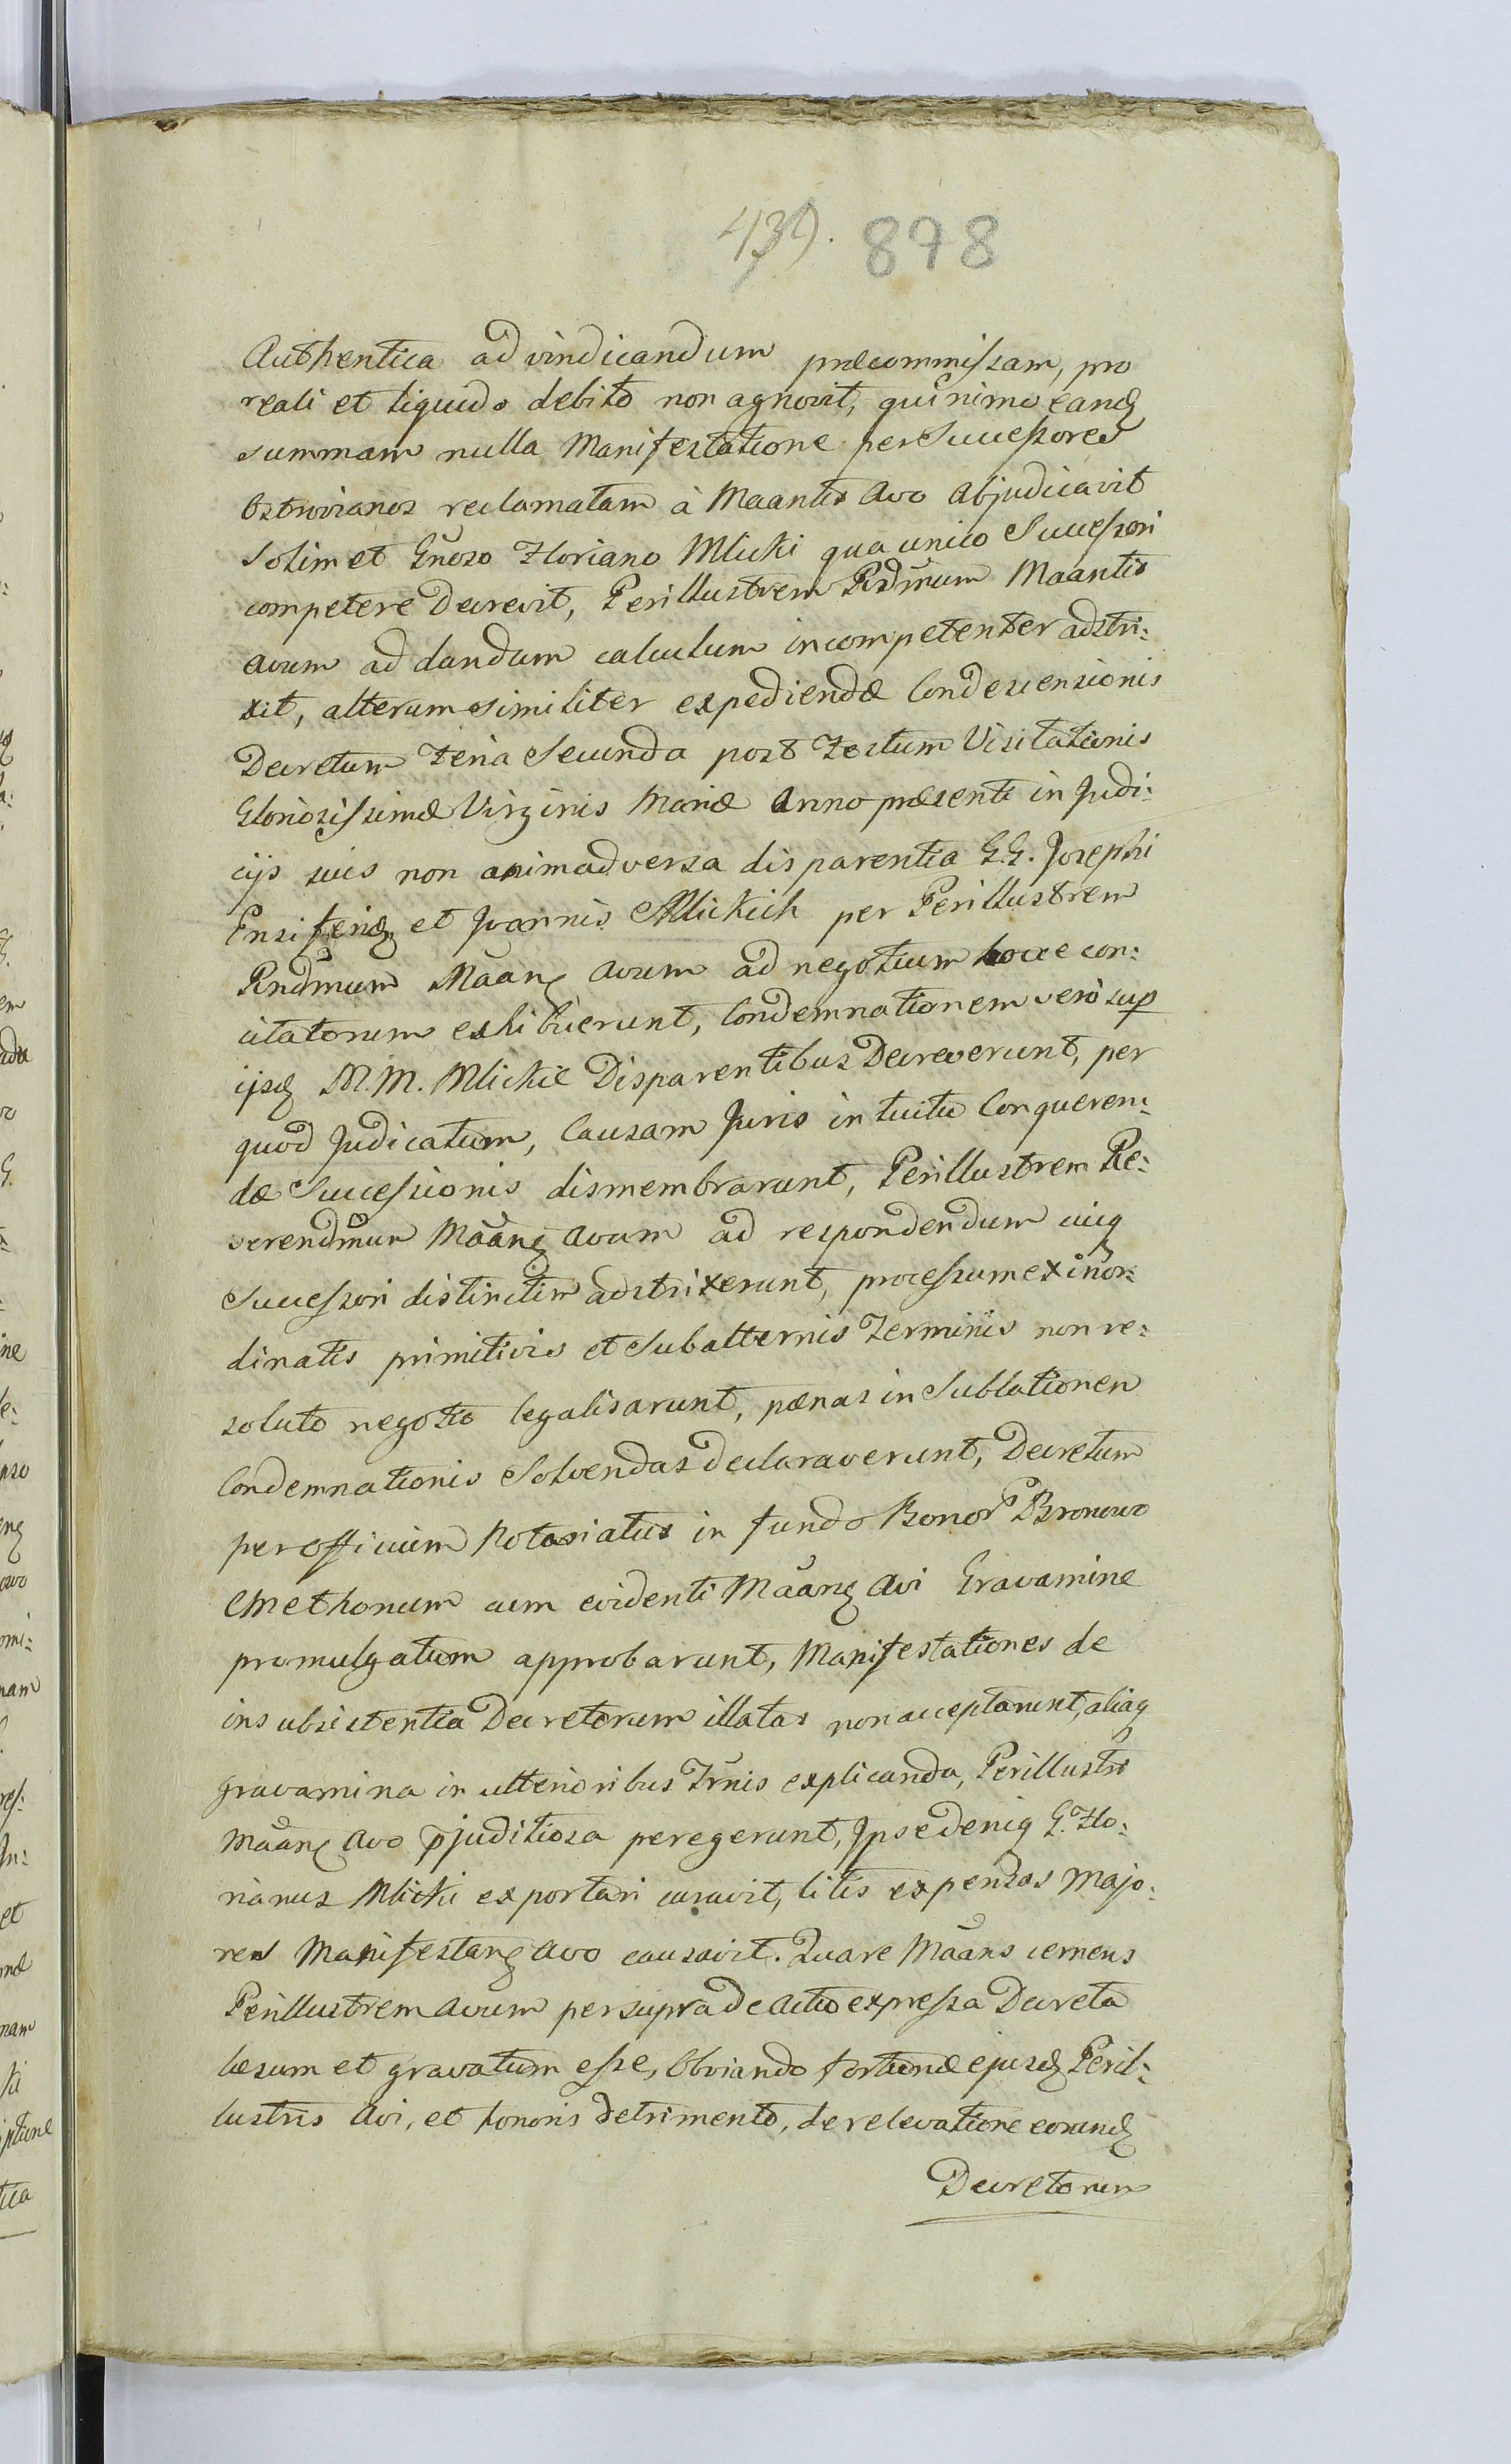 439. 878
Authentica ad vindicandum præcommissam, pro
reali et liquido debito non agnovit, quinimo eandꝫ
summam nulla Manifestatione per Successores
Ostrovianos reclamatam à Maantis Avo abjudicavit
solim et Gnoso Floriano Mlicki qua unico Successori
competere Decrevit, Perillustrem Rdmum Maantis
avum ad dandum calculum incompetenter adstri:
xit, alterum similiter expediendæ Condescensionis
Decretum Feria Secunda post Festum Visitationis
Gloriosissimæ Virginis Mariæ Anno præsenti in Judi:
cijs suis non animadversa disparentia G.G. Josephi
Ensiferi et Joannis Mlickich per Perillustrem
Rndmum Maanꝫ avum ad negotium hocce con:
citatorum exhibuerunt, Condemnationem vero sup
ijsdꝫ M.M. Mlickie Disparentibus Decreverunt, per
quod Judicatum, Causam Juris intuitu Conqueren:
dæ Successionis dismembrarunt, Perillustrem Re:
verendmum Maanꝫ avum ad respondendum cuiqꝫ
Successori distinctim adstrixerunt, processum ex inor:
dinatis primitivis et Subalternis Terminis non re:
soluto negotio legalisarunt, pænas in Sublationem
Condemnationis Solvendas declaraverunt, Decretum
per officium Notariatus in fundo Bonor Bronowo
Cmethonum cum evidenti Maanꝫ Avi Gravamine
promulgatum approbarunt, Manifestationes de
insubsistentia Decretorum illatas non acceptarunt, aliaqꝫ
gravamina in ulterioribus Trnis explicanda, Perillustri
Maanꝫ Avo pjuditiosa peregerunt, Ipse deniqꝫ G. Flo:
rianus Mlicki exportari curavit, litis expensas majo:
res Manifestanꝫ avo causavit. Quare Maans cernens
Perillustrem avum per supra de actu expressa Decreta
læsum et gravatum esse, Obviando fortunæ ejusdꝫ Peril:
lustris Avi, et honoris detrimento, de relevatione eorundꝫ
Decretorum